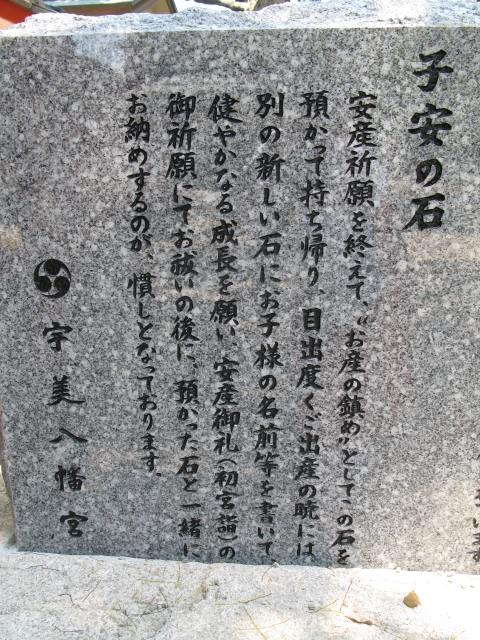 子安の石
安産祈願を終えて、“お産の鎮め”としてこの石を
預かって持ち帰り、目出度くご出産の暁には、
別の新しい石にお子様の名前等を書いて
健やかなる成長を願い、安産御礼(初宮詣)の
御祈願にてお祓いの後に、預かった石と一緒に
お納めするのが、慣しとなっております。
宇美八幡宮